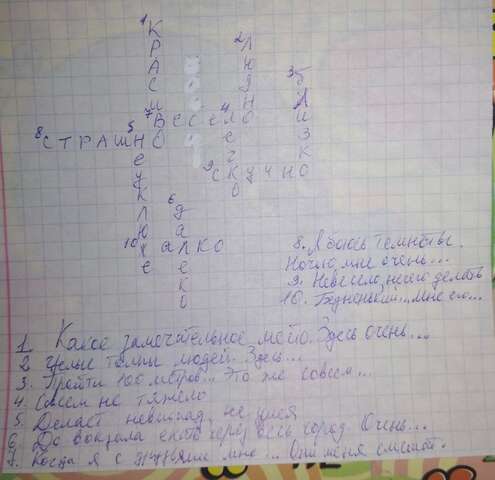 1 КРАСИВО
2 ЛЮДНО
3 БЛИЗКО
7 ВЕСЕЛО
4 ЛЕГКО
8 СТРАШНО
5 НЕУКЛЮЖЕ
9 СКУЧНО
6 ДАЛЕКО
10 ЖАЛКО
8. Я боюсь темноты.
Ночью, мне очень...
9. Невесело, нечего делать
10. Бедненький... Мне его...
1 Какое замечательное место. Здесь очень...
2 Целые толпы людей. Здесь...
3. Пройти 100 метров... Это же совсем...
4. Совсем не тяжело
5. Делает невпопад, не умея
6. До вокзала ехать через весь город. Очень...
7. Когда я с друзьями мне... Они меня смешат.